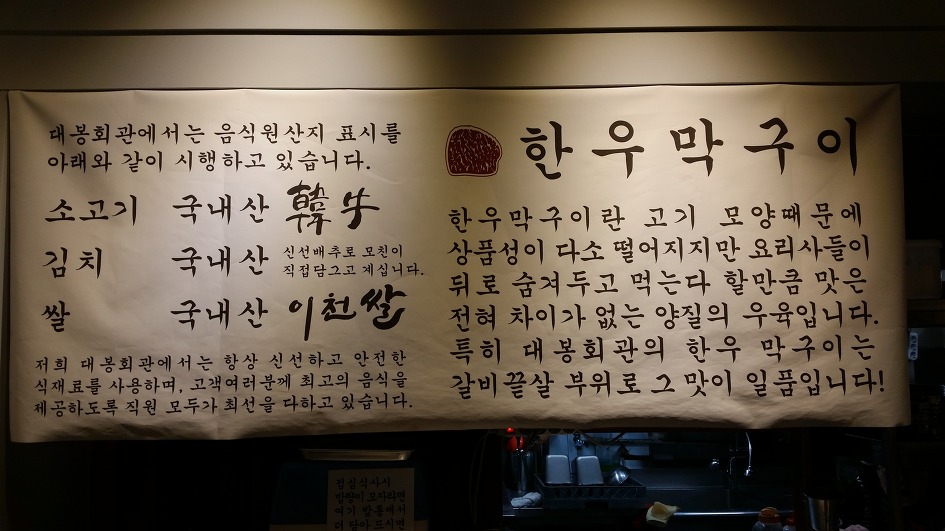 대봉회관에서는 음식원산지 표시를
아래와 같이 시행하고 있습니다.
소고기 국내산 韓牛
김치 국내산 신선배추로 모친이
직접담그고 계십니다.
쌀 국내산 이천쌀
저희 대봉회관에서는 항상 신선하고 안전한
식재료를 사용하며, 고객여러분께 최고의 음식을
제공하도록 직원 모두가 최선을 다하고 있습니다.
한우막구이
한우막구이란 고기 모양때문에
상품성이 다소 떨어지지만 요리사들이
뒤로 숨겨두고 먹는다 할만큼 맛은
전혀 차이가 없는 양질의 우육입니다.
특히 대봉회관의 한우 막구이는
갈비끝살 부위로 그 맛이 일품입니다!
점심식사시
반찬이 모자라면
여기 밭통에서
더 담아 드시면